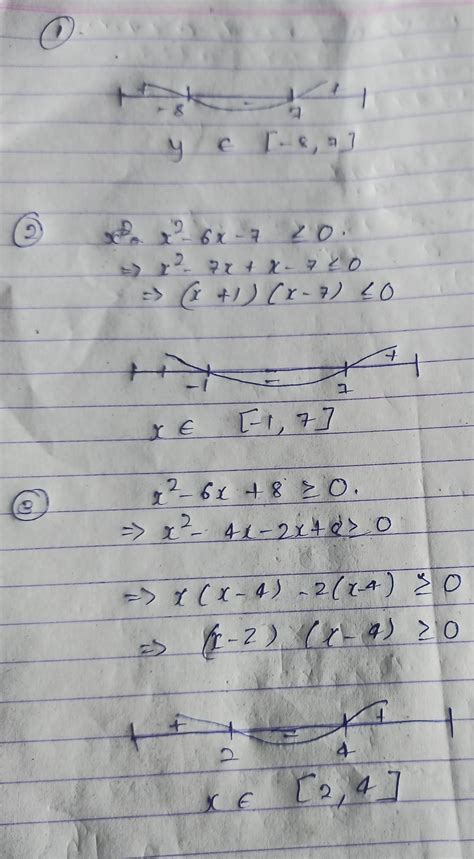 ①
+ - +
-8 7
y ∈ [-8, 7]
② x² - 6x - 7 ≤ 0.
⇒ x² - 7x + x - 7 ≤ 0
⇒ (x + 1) (x - 7) ≤ 0
- +
-1 7
x ∈ [-1, 7]
③ x² - 6x + 8 ≥ 0.
⇒ x² - 4x - 2x + 8 ≥ 0
⇒ x(x - 4) - 2(x-4) ≥ 0
⇒ (x - 2) (x - 4) ≥ 0
+ - +
2 4
x ∈ [2, 4]